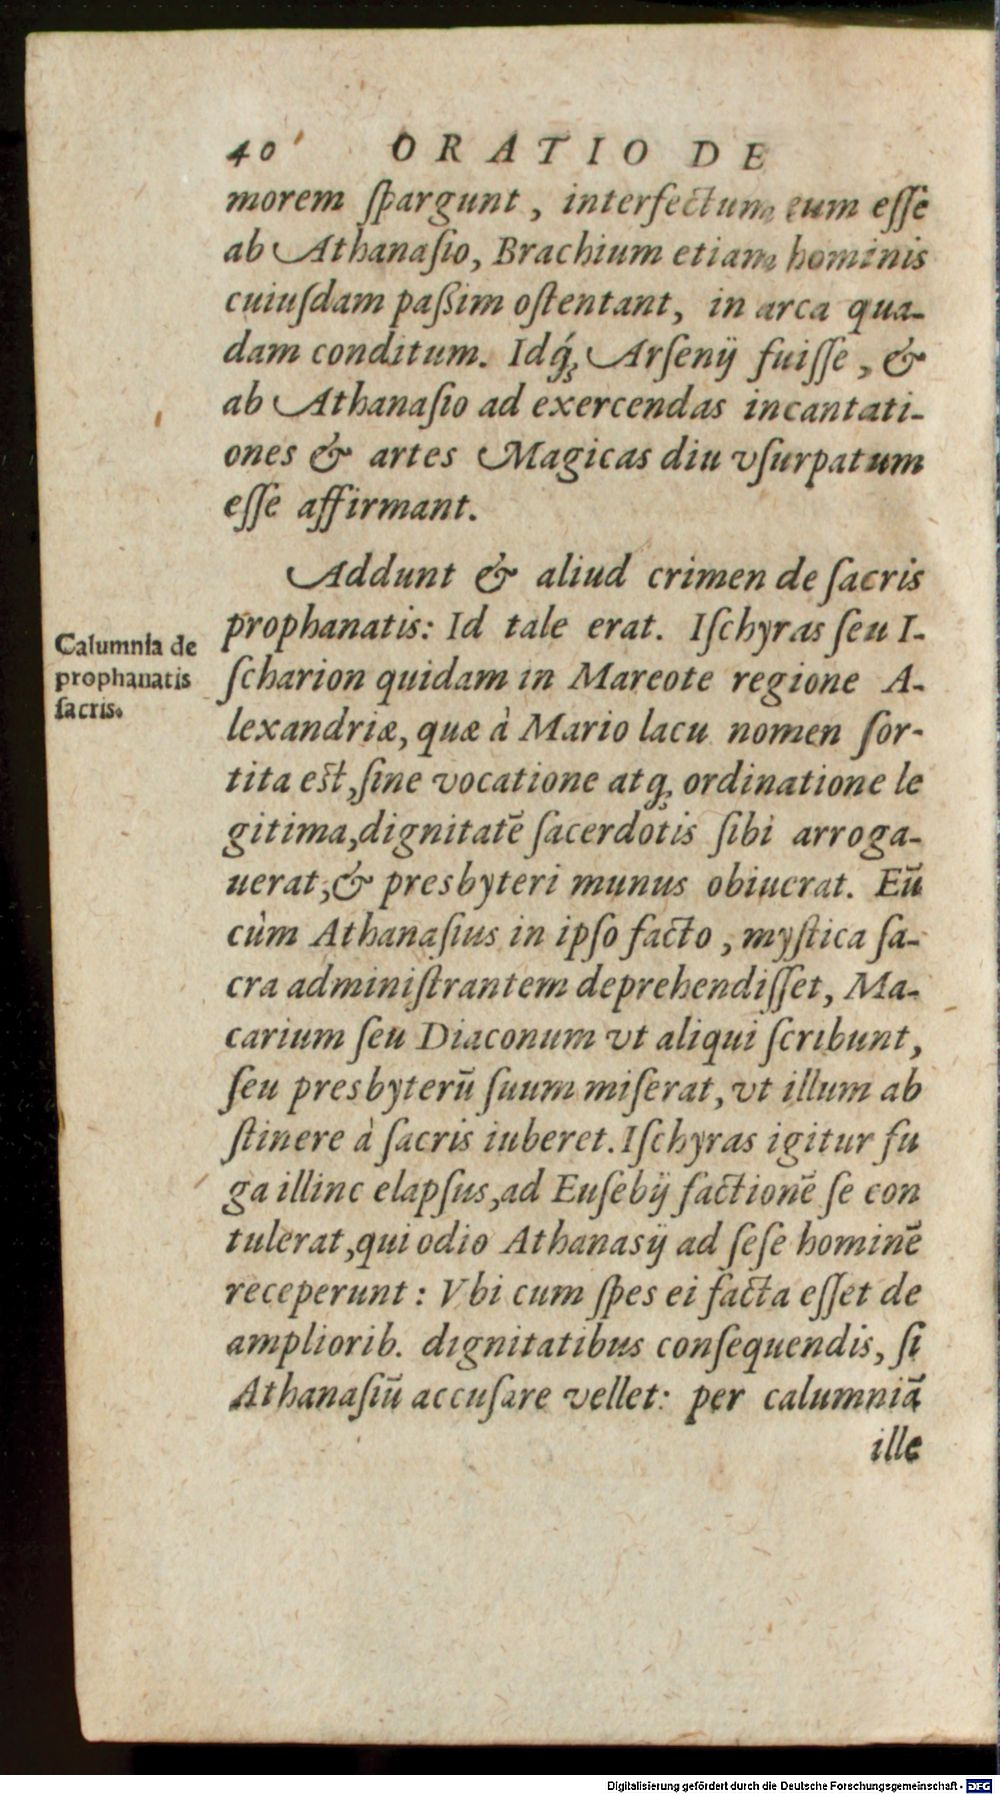 40 ORATIO DE
morem ſpargunt, interfectum eum eſſe
ab Athanaſio, Brachium etiam hominis
cuiuſdam paßim oſtentant, in arca qua-
dam conditum. Idq́; Arſenij fuiſſe, &
ab Athanaſio ad exercendas incantati-
ones & artes Magicas diu vſurpatum
eſſe affirmant.
Addunt & aliud crimen de ſacris
prophanatis: Id tale erat. Iſchyras ſeu I-
ſcharion quidam in Mareote regione A-
lexandriæ, quæ à Mario lacu nomen ſor-
tita eſt, ſine vocatione atq; ordinatione le
gitima, dignitatē ſacerdotis ſibi arroga-
uerat, & presbyteri munus obiuerat. Eū
cùm Athanaſius in ipſo facto, myſtica ſa-
cra adminiſtrantem deprehendiſſet, Ma-
carium ſeu Diaconum vt aliqui ſcribunt,
ſeu presbyterū ſuum miſerat, vt illum ab
ſtinere à ſacris iuberet. Iſchyras igitur fu
ga illinc elapſus, ad Euſebij factionē ſe con
tulerat, qui odio Athanasij ad ſeſe hominē
receperunt: Vbi cum ſpes ei facta eſſet de
ampliorib. dignitatibus conſequendis, ſi
Athanaſiū accuſare vellet: per calumniā
ille
Calumnia de
prophanatis
ſacris.
Digitalisierung gefördert durch die Deutsche Forschungsgemeinschaft - DFG